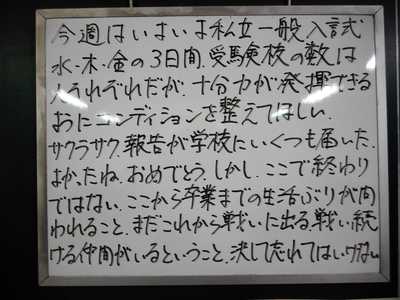 今週はいよいよ私立一般入試
水・木・金の3日間.受験校の数は
人それぞれだが、十分力が発揮できる
おにコンディションを整えてほしい.
サクラサク.報告が学校にいくつも届いた.
よかったね.おめでとう.しかし.ここで終わり
ではない.ここから卒業までの生活ぶりが問
われること.まだこれから戦いに出る.戦い続
ける仲間がいるということ.決して忘れてはいけない